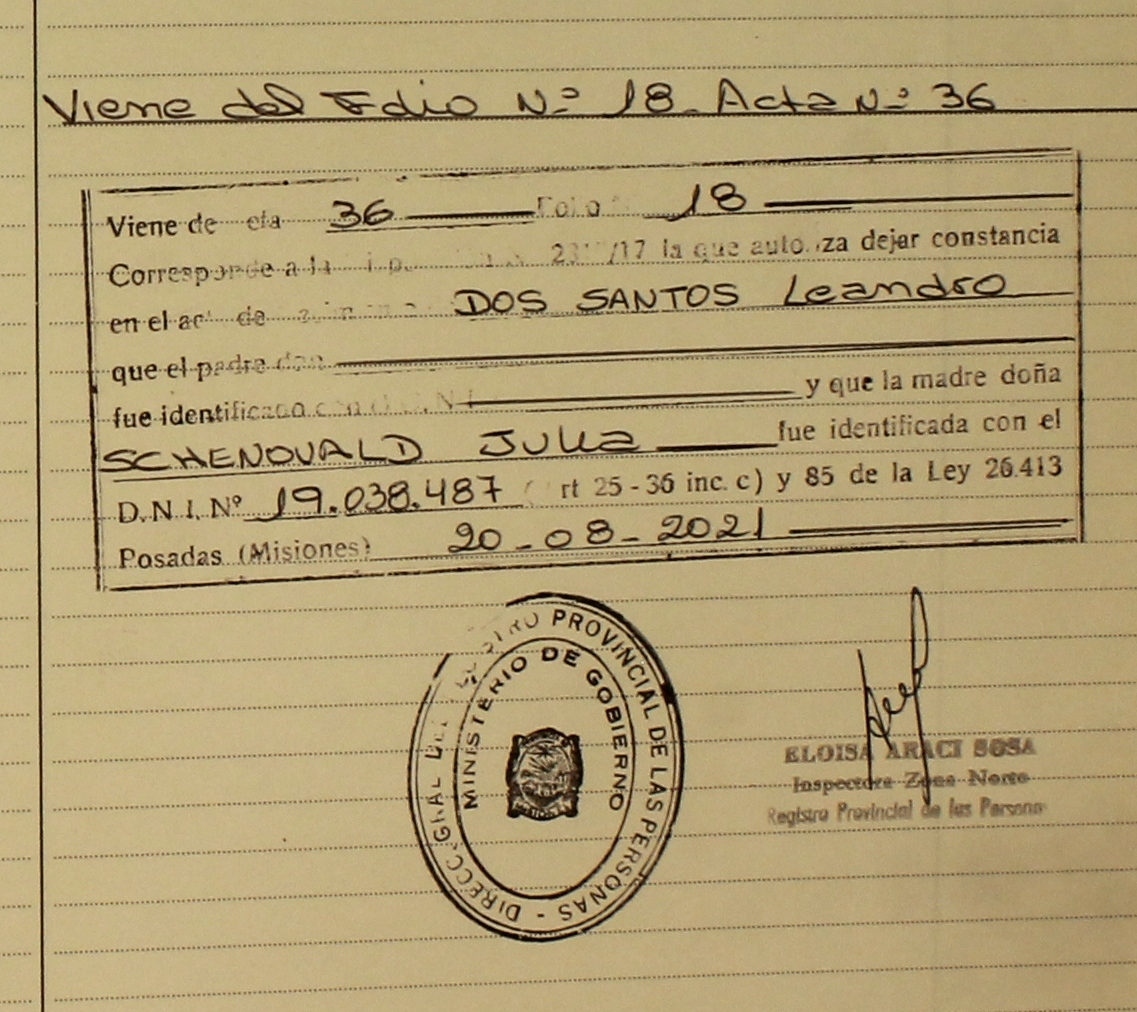 Viene del Folio Nº 18 - Acta Nº 36
Viene de 36 Folio 18
Corresponde a la /17 la que autoriza dejar constancia
en el de DOS SANTOS Leandro
que el padre don
fue identificado con y que la madre doña
SCHENOVALD Julia fue identificada con el
D.N.I. Nº 19.038.487 ( rt 25 - 36 inc. c) y 85 de la Ley 26.413
Posadas (Misiones) 20 - 08 - 2021
PROVINCIAL DE LAS PERSONAS - DIRECC. GRAL
MINISTERIO DE GOBIERNO
ELOISA ARACI SOSA
Inspectora Zona Norte
Registro Provincial de las Persona